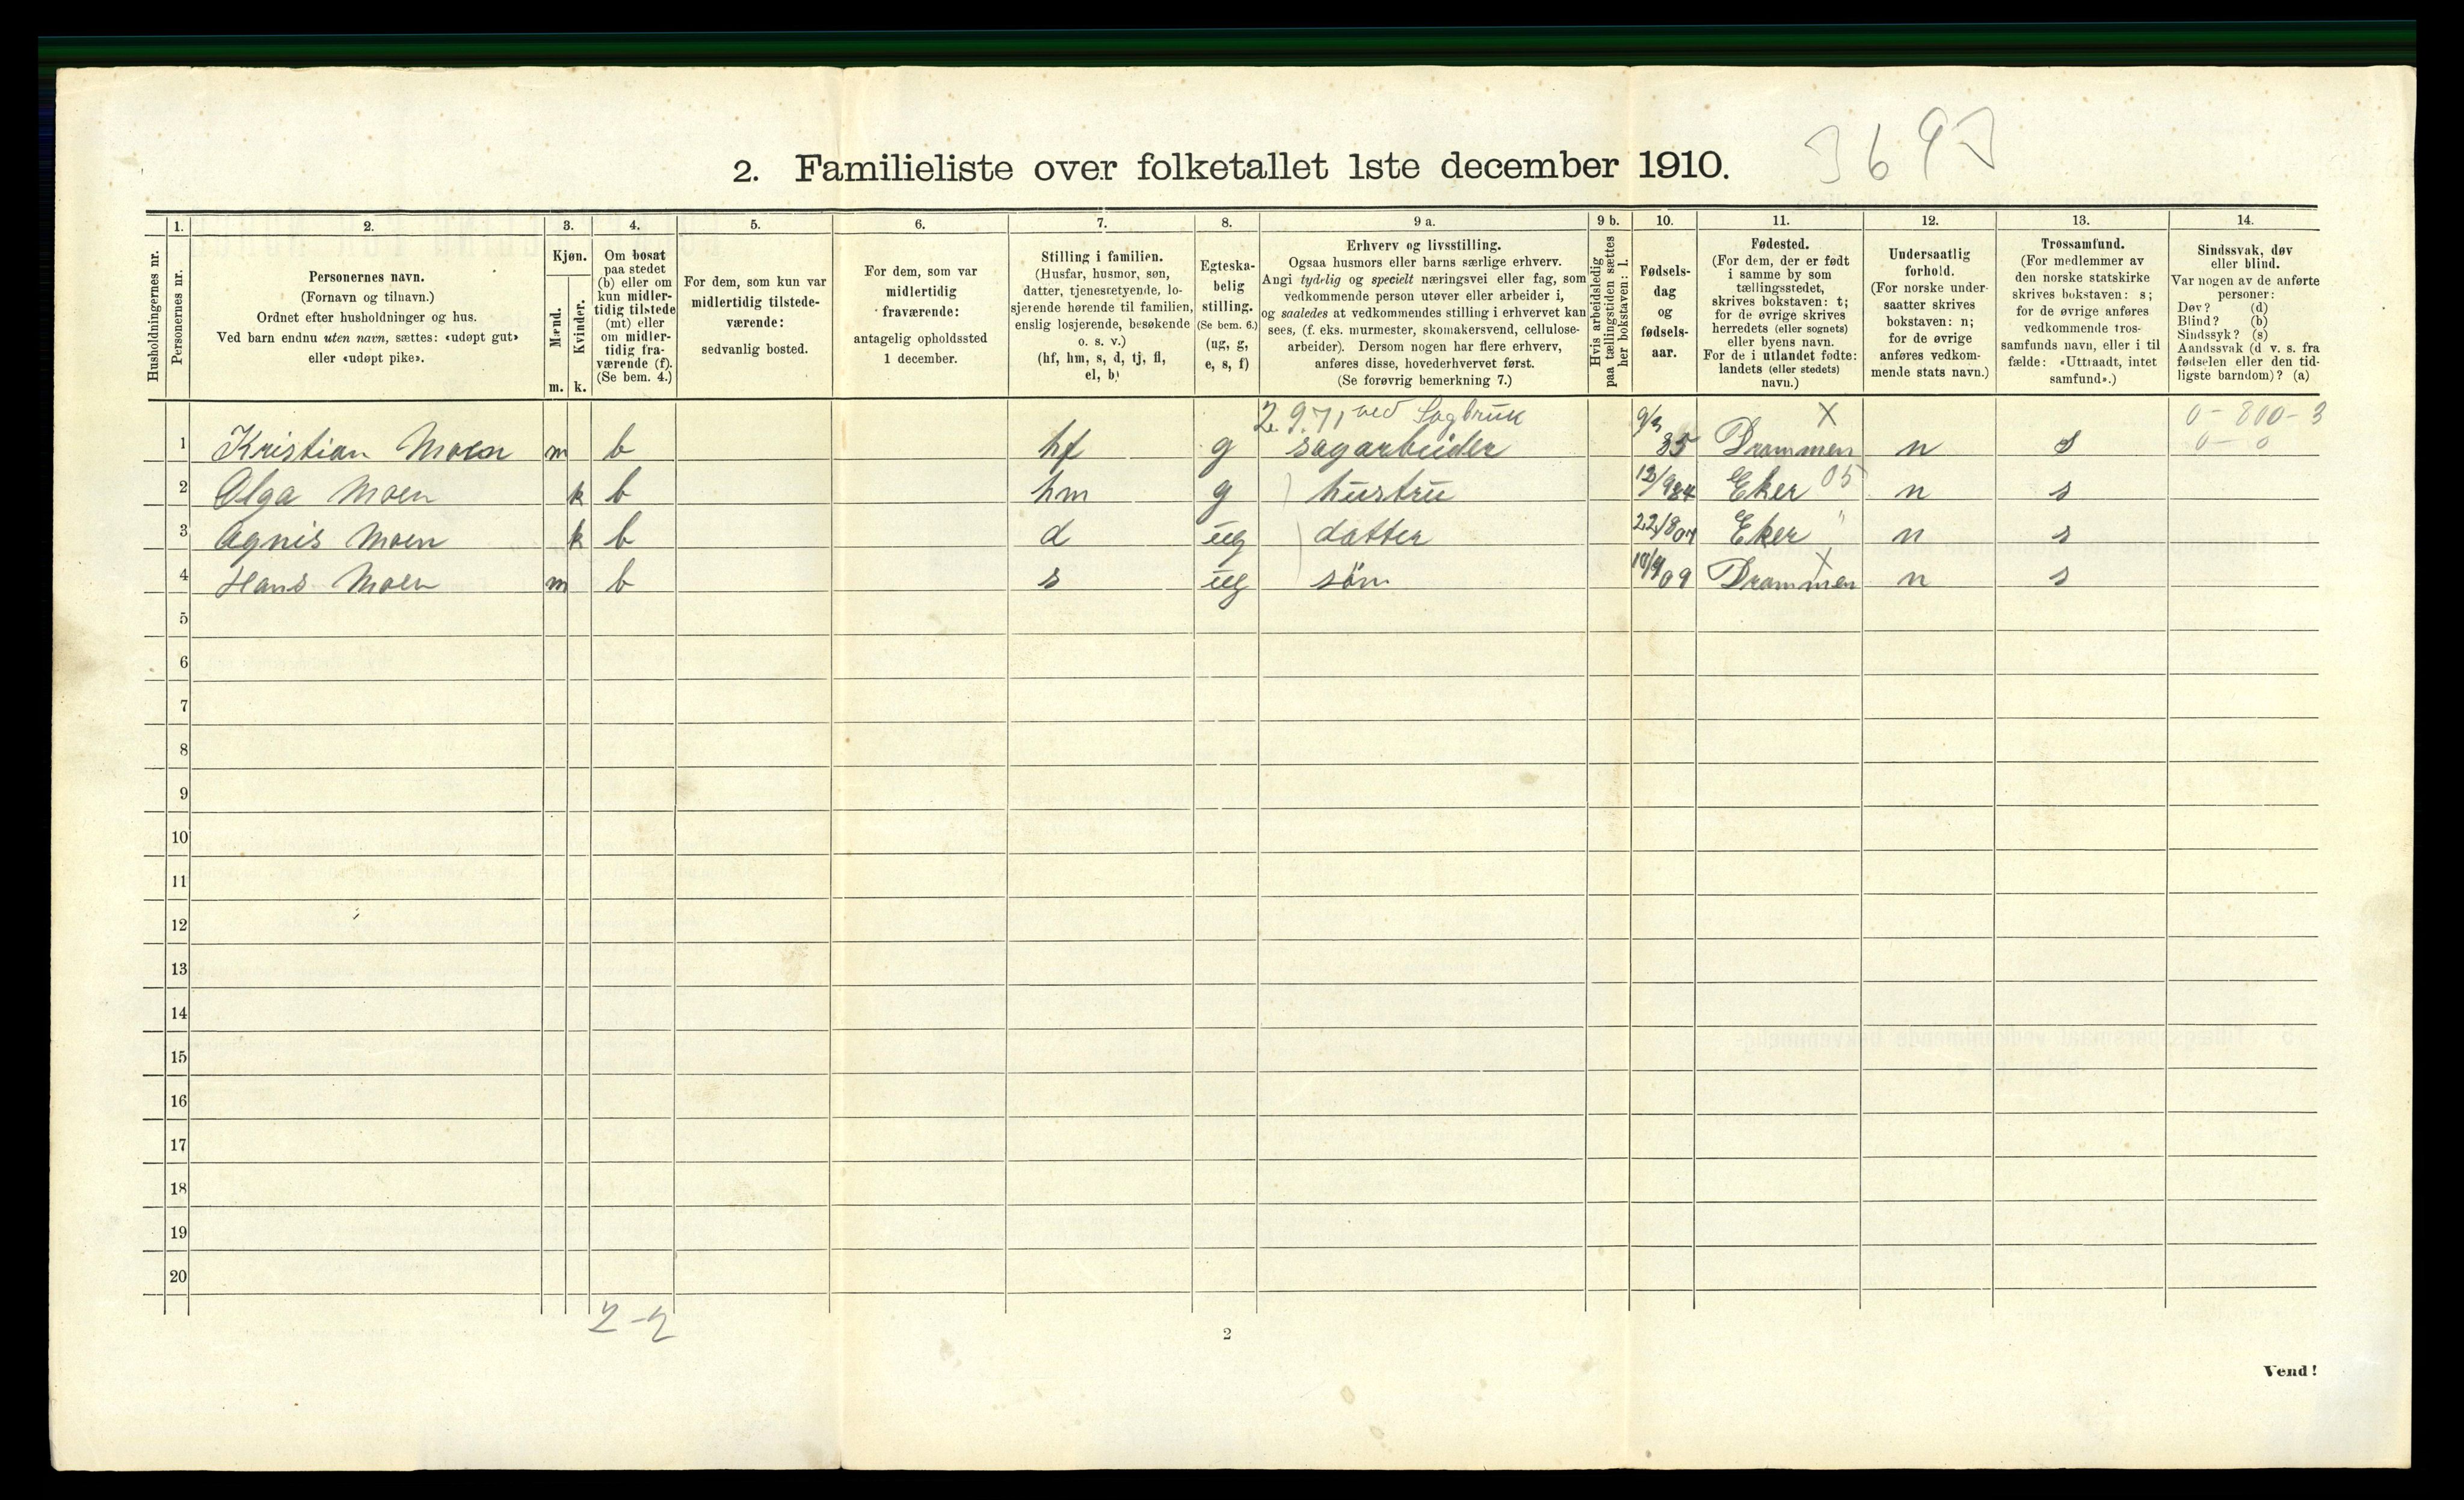 3697
2. Familieliste over folketallet 1ste december 1910.
Husholdningernes nr.
1. Personernes nr.
2. Personernes navn. (Fornavn og tilnavn.) Ordnet efter husholdninger og hus. Ved barn endnu uten navn, sættes: «udøpt gut» eller «udøpt pike».
3. Kjøn. Mænd. m. Kvinder. k.
4. Om bosat paa stedet (b) eller om kun midlertidig tilstede (mt) eller om midlertidig fraværende (f). (Se bem. 4.)
5. For dem, som kun var midlertidig tilstedeværende: sedvanlig bosted.
6. For dem, som var midlertidig fraværende: antagelig opholdssted 1 december.
7. Stilling i familien. (Husfar, husmor, søn, datter, tjenestetyende, losjerende hørende til familien, enslig losjerende, besøkende o. s. v.) (hf, hm, s, d, tj, fl, el, b)
8. Egteskabelig stilling. (Se bem. 6.) (ug, g, e, s, f)
9 a. Erhverv og livsstilling. Ogsaa husmors eller barns særlige erhverv. Angi tydelig og specielt næringsvei eller fag, som vedkommende person utøver eller arbeider i, og saaledes at vedkommendes stilling i erhvervet kan sees, (f. eks. murmester, skomakersvend, cellulosearbeider). Dersom nogen har flere erhverv, anføres disse, hovederhvervet først. (Se forøvrig bemerkning 7.)
9 b. Hvis arbeidsledig paa tællingstiden sættes her bokstaven: l.
10. Fødselsdag og fødselsaar.
11. Fødested. (For dem, der er født i samme by som tællingsstedet, skrives bokstaven: t; for de øvrige skrives herredets (eller sognets) eller byens navn. For de i utlandet fødte: landets (eller stedets) navn.)
12. Undersaatlig forhold. (For norske undersaatter skrives bokstaven: n; for de øvrige anføres vedkommende stats navn.)
13. Trossamfund. (For medlemmer av den norske statskirke skrives bokstaven: s; for de øvrige anføres vedkommende trossamfunds navn, eller i tilfælde: «Uttraadt, intet samfund».)
14. Sindssvak, døv eller blind. Var nogen av de anførte personer: Døv? (d) Blind? (b) Sindssyk? (s) Aandssvak (d v. s. fra fødselen eller den tidligste barndom)? (a)
2.9.71 ved Sagbruk X 0-800-3
1 Kristian Moen m b hf g sagarbeider 9/3 85 Drammen n s 0-0
2 Olga Moen k b hm g hustru 12/9 84 Eker 05 n s
3 Agnis Moen k b d ug datter 22/8 07 Eker " n s
4 Hans Moen m b s ug søn 10/9 09 Drammen X n s
5
6
7
8
9
10
11
12
13
14
15
16
17
18
19
20
2-2
2
Vend!